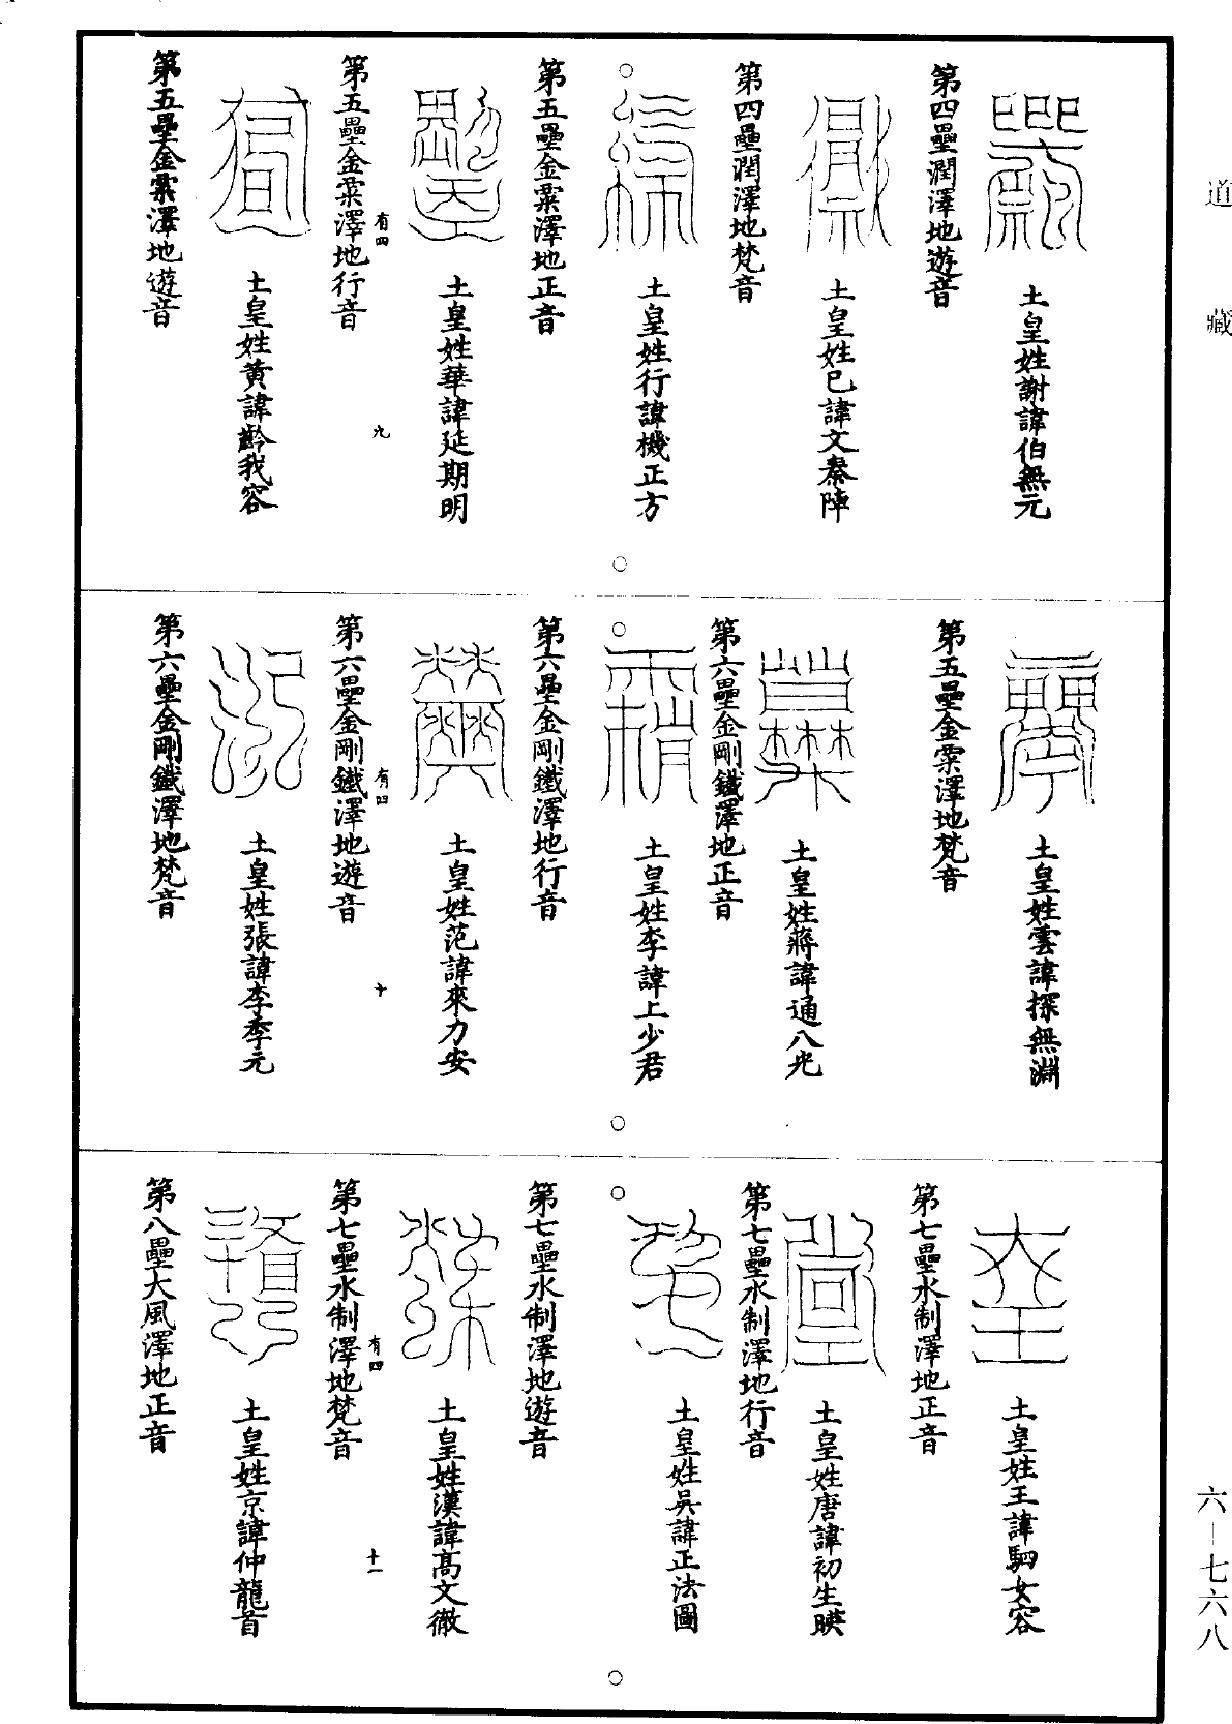 道藏
土皇姓謝諱伯無元
第四壘潤澤地遊音
土皇姓巳諱文秦陣
第四壘潤澤地梵音
土皇姓行諱機正方
第五壘金粟澤地正音
土皇姓華諱延期明
有四
九
第五壘金粟澤地行音
土皇姓黃諱齡我容
第五壘金粟澤地遊音
土皇姓雲諱探無淵
第五壘金粟澤地梵音
土皇姓蔣諱通八光
第六壘金剛鐵澤地正音
土皇姓李諱上少君
第六壘金剛鐵澤地行音
土皇姓范諱來力安
有四
十
第六壘金剛鐵澤地遊音
土皇姓張諱李季元
第六壘金剛鐵澤地梵音
土皇姓王諱駟女容
第七壘水制澤地正音
土皇姓唐諱初生映
第七壘水制澤地行音
土皇姓吳諱正法圖
第七壘水制澤地遊音
土皇姓漢諱高文徹
有四
十一
第七壘水制澤地梵音
土皇姓京諱仲龍首
第八壘大風澤地正音
六－七六八